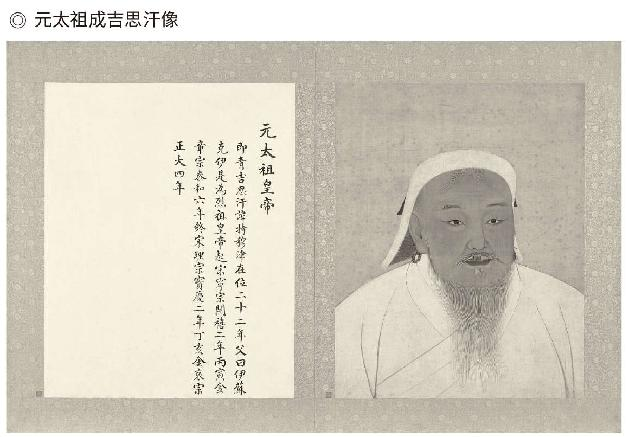 ◎ 元太祖成吉思汗像
元太祖皇帝
即青吉思汗諱特穆津在位二十二年父曰伊蘇
克伊是為烈祖皇帝起宋寧宗開禧二年丙寅金
章宗泰和六年終宋理宗寶慶三年丁亥金哀宗
正大四年